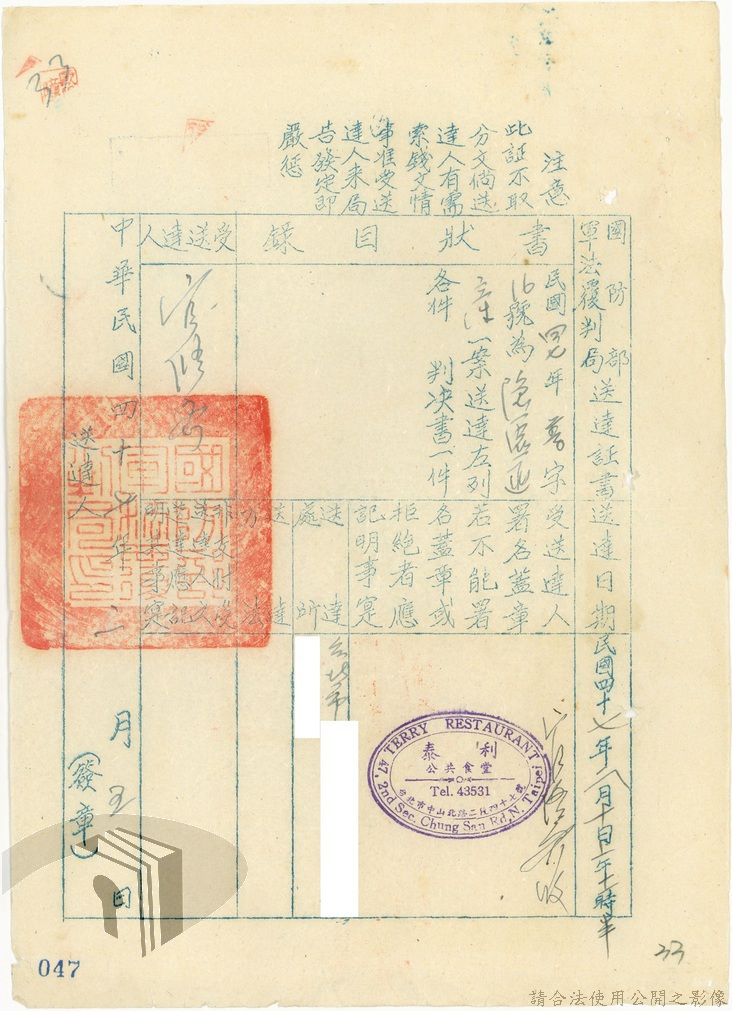 33
注意
此証不取
分文倘送
達人有需
索錢文情
事准受送
達人来局
告發定即
嚴懲
國防部
軍法覆判局
送達証書
送達日期
民國四十七年二月十日上午十一時半
書狀目錄
民國四七年
字
號為
一案送達左列
各件
判决書一件
受送達人
受送達人
署名蓋章
若不能署
名蓋章或
拒絕者應
記明事寔
送達處所
台北市
送達方法
非交付受
送達人之
送達應記
明其事寔
TERRY RESTAURANT
泰利
公共食堂
Tel. 43531
台北市中山北路二段四十七號
47, 2nd Sec. Chung San Rd, N. Taipei
中華民國四十七年二月五日
送達人
(簽章)
33
047
請合法使用公開之影像